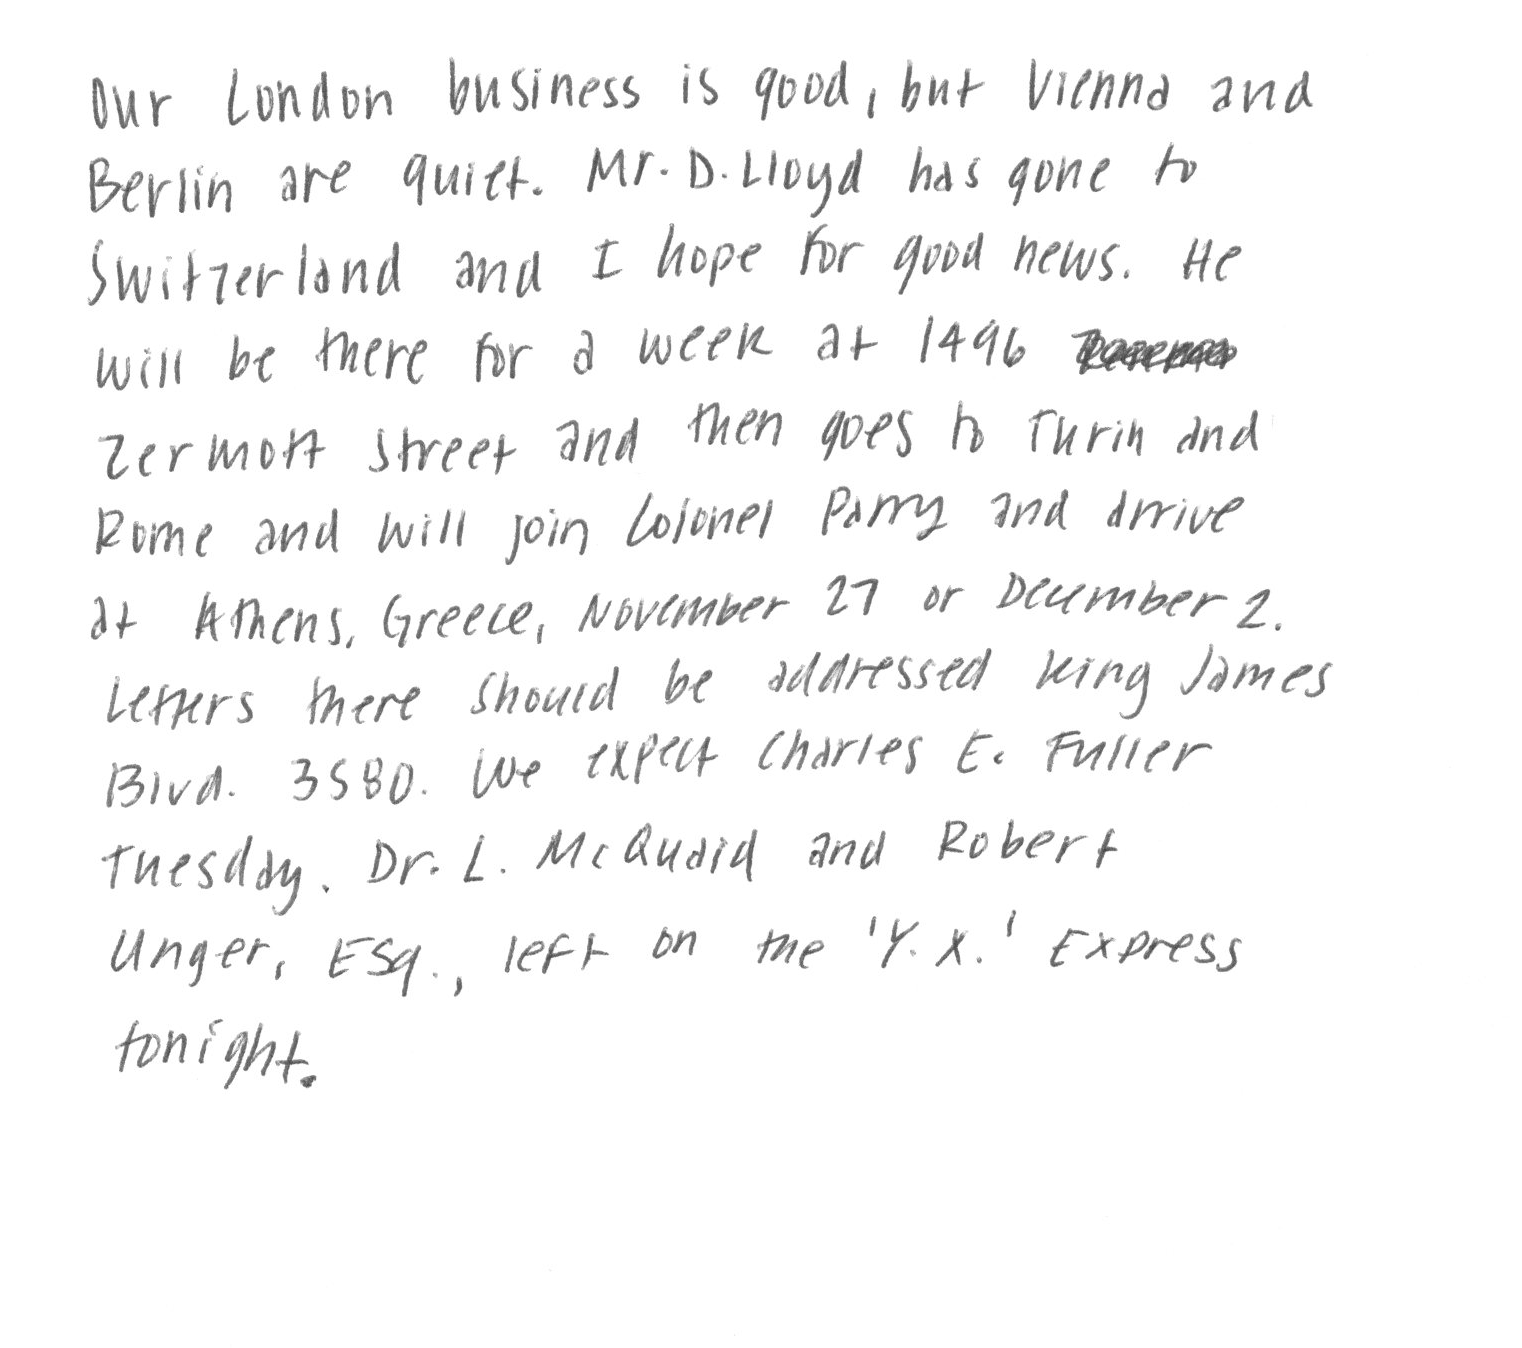 Our London business is good, but Vienna and
Berlin are quiet. Mr. D. Lloyd has gone to
Switzerland and I hope for good news. He
will be there for a week at 1496
Zermott Street and then goes to Turin and
Rome and will join Colonel Parry and arrive
at Athens, Greece, November 27 or December 2.
Letters there should be addressed King James
Blvd. 3580. We expect Charles E. Fuller
Tuesday. Dr. L. McQuaid and Robert
Unger, Esq., left on the 'Y.X.' Express
tonight.